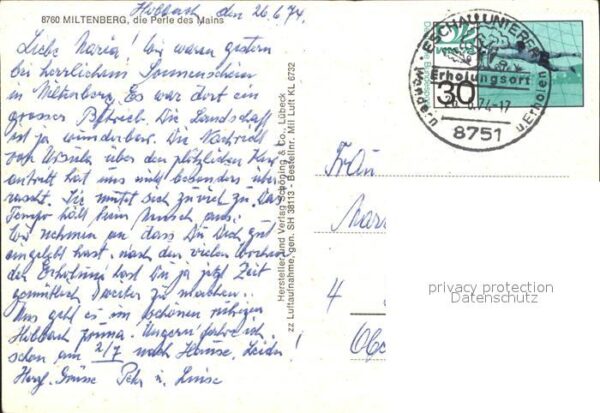 8760 MILTENBERG, die Perle des Mains
Hobbach den 26.6.74.
Liebe Maria! Wir waren gestern
bei herrlichem Sonnenschein
in Miltenberg. Es war dort ein
grosser Betrieb. Die Landschaft
ist ja wunderbar. Die Nachricht
von Ursula über den plötzlichen
antritt hat uns nicht besonders über-
rascht. Sie mutet sich zuviel zu. Das
Tempo hält kein Mensch aus.
Wir nehmen an dass Du Dich gut
eingelebt hast. nach den vielen Wochen
der Erholung hast Du ja jetzt Zeit
gemütlich weiter zu machen.
Uns geht es im schönen ruhigen
Hobbach prima. Ungern fahre ich
schon am 2/7 nach Hause. Leider!
Herzl. Grüsse Petr u. Luise
Hersteller und Verlag Schöning & Co., Lübeck
zz Luftaufnahme, gen. SH 36113 - Bestellnr. Mil Luft KL 6732
30
ESCHAU UNTERFR
Erholungsort
6.74-17
Wandern u. Erholen
8751
Frau
4
privacy protection
Datenschutz